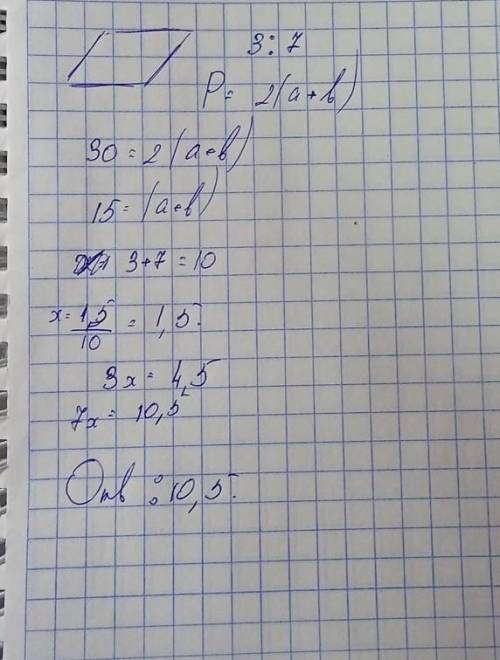 3:7
P= 2(a+b)
30=2(a+b)
15=(a+b)
3+7=10
x=1,5/10=1,5.
3x=4,5
7x=10,5
Отв: 10,5.